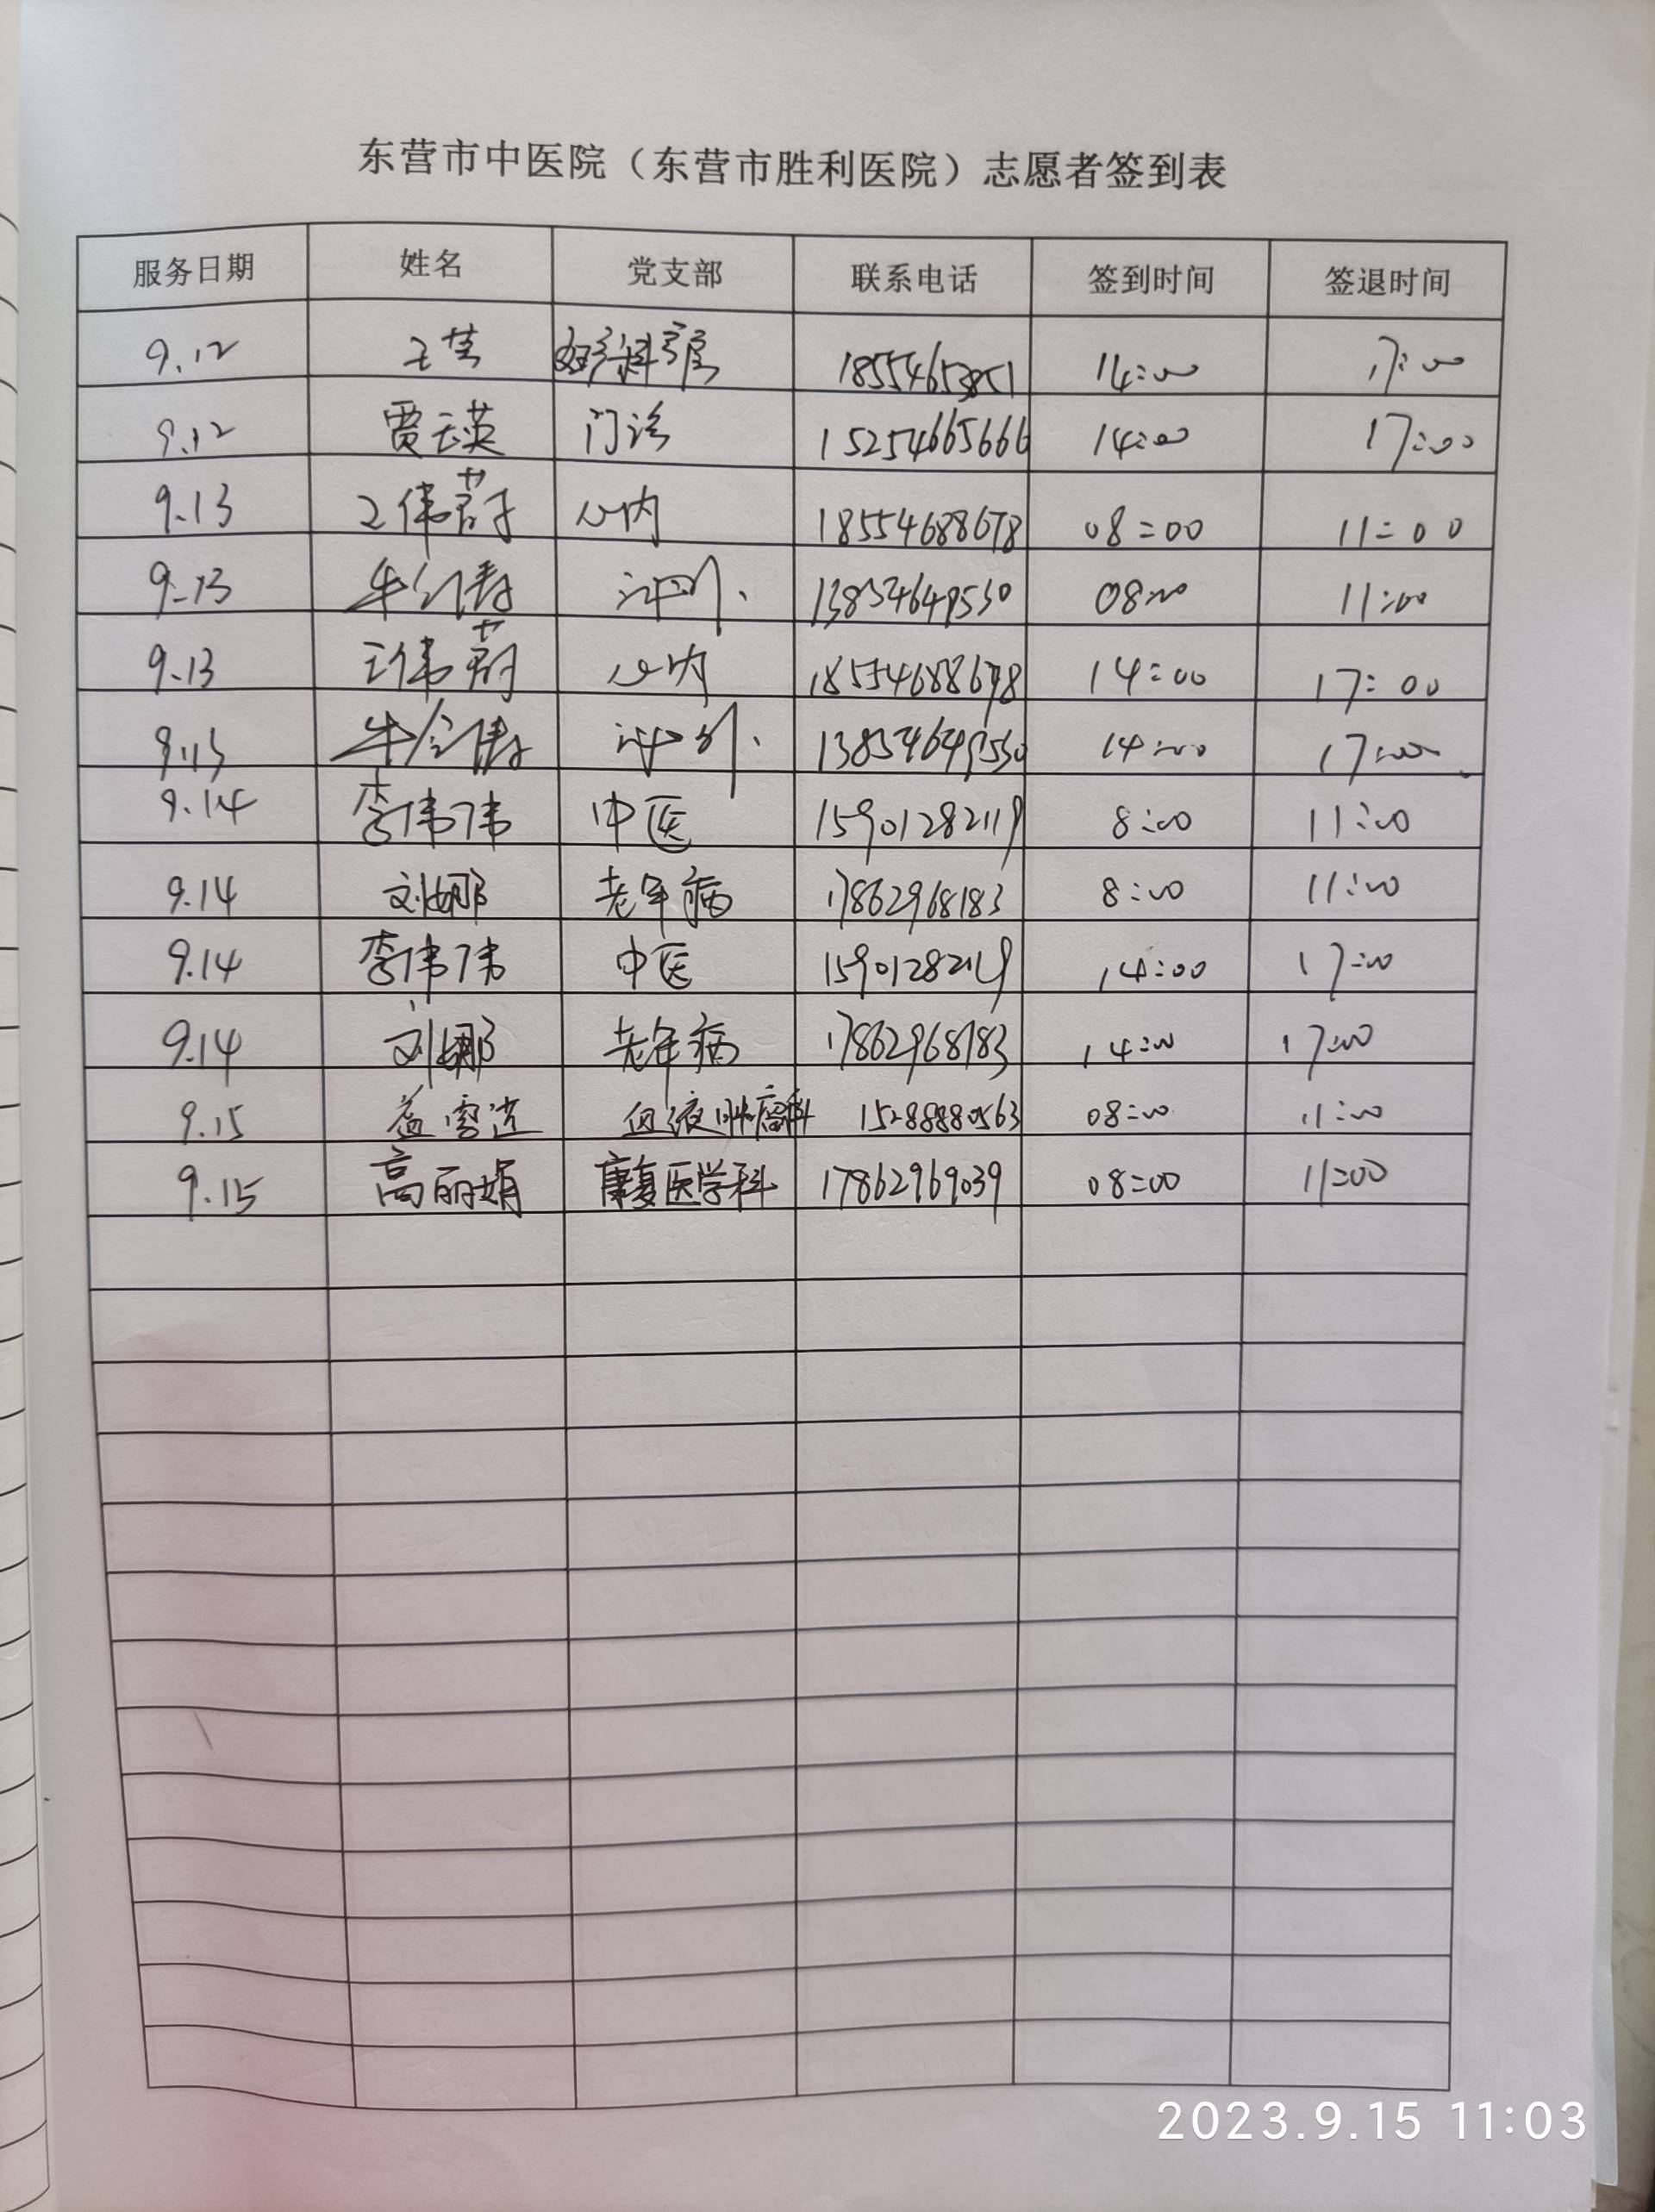 东营市中医院（东营市胜利医院）志愿者签到表
服务日期 姓名 党支部 联系电话 签到时间 签退时间
9.12 14:00 17:00
9.12 贾云英 门诊 15254665666 14:00 17:00
9.13 心内 18554688678 08:00 11:00
9.13 13854649530 08:00 11:00
9.13 心内 18554688678 14:00 17:00
9.13 13854649530 14:00 17:00
9.14 李伟伟 中医 15901282119 8:00 11:00
9.14 刘娜 老年病 17862968183 8:00 11:00
9.14 李伟伟 中医 15901282119 14:00 17:00
9.14 刘娜 老年病 17862968183 14:00 17:00
9.15 血液肿瘤科 15288880563 08:00 11:00
9.15 高丽娟 康复医学科 17862969039 08:00 11:00
2023.9.15 11:03